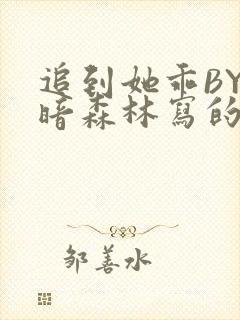 追到她乖BY
暗森林寫的
邹善水